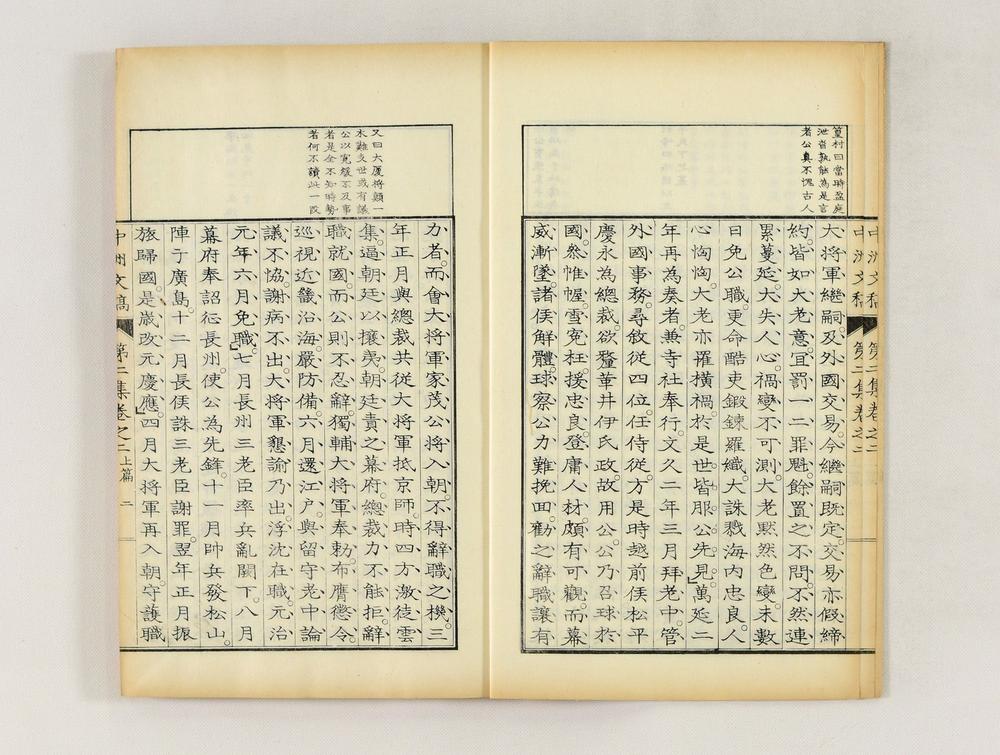 篁村曰當時盈庭
泄沓孰能為是言
者公真不愧古人
中洲文稿
第二集卷之二
大將軍繼嗣及外國交易今繼嗣既定交易亦假締
約皆如大老意宜罰一二罪魁餘置之不問不然連
累蔓延大失人心禍變不可測大老默然色變未數
日免公職更命酷吏鍛鍊羅織大誅戮海內忠良人
心恟恟大老亦罹橫禍於是世皆服公先見萬延二
年再為奏者兼寺社奉行文久二年三月拜老中管
外國事務尋敘從四位任侍從方是時越前侯松平
慶永為總裁欲釐革井伊氏政故用公公乃召球於
國參帷幄雪冤枉援忠良登庸人材頗有可觀而幕
威漸墜諸侯解體球察公力難挽回勸之辭職讓有
又曰大廈將顛一
木難支世或有議
公以寬緩不及事
者是全不知時勢
者何不讀此一段
力者而會大將軍家茂公將入朝不得辭職之機三
年正月與總裁共從大將軍抵京師時四方激徒雲
集逼朝廷以攘夷朝廷責之幕府總裁力不能拒辭
職就國而公則不忍辭獨輔大將軍奉勅布膺懲令
巡視近畿沿海嚴防備六月還江戶與留守老中論
議不協謝病不出大將軍懇諭乃出浮沈在職元治
元年六月免職七月長州三老臣率兵亂闕下八月
幕府奉詔征長州使公為先鋒十一月帥兵發松山
陣于廣島十二月長侯誅三老臣謝罪翌年正月振
旅歸國是歲改元慶應四月大將軍再入朝守護職
中洲文稿
第二集卷之二上篇
二